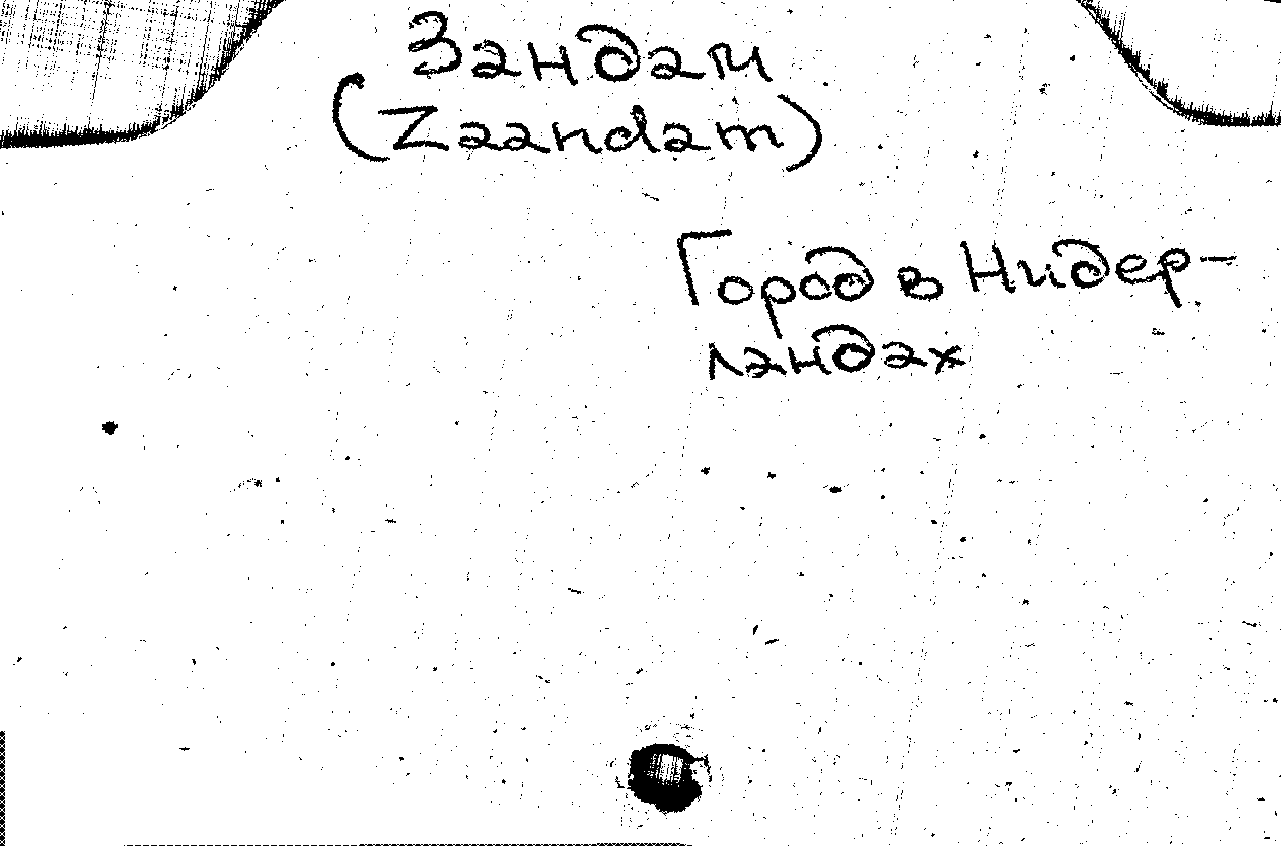 Зандам
(Zaandam)
Город в Нидер-
ландах